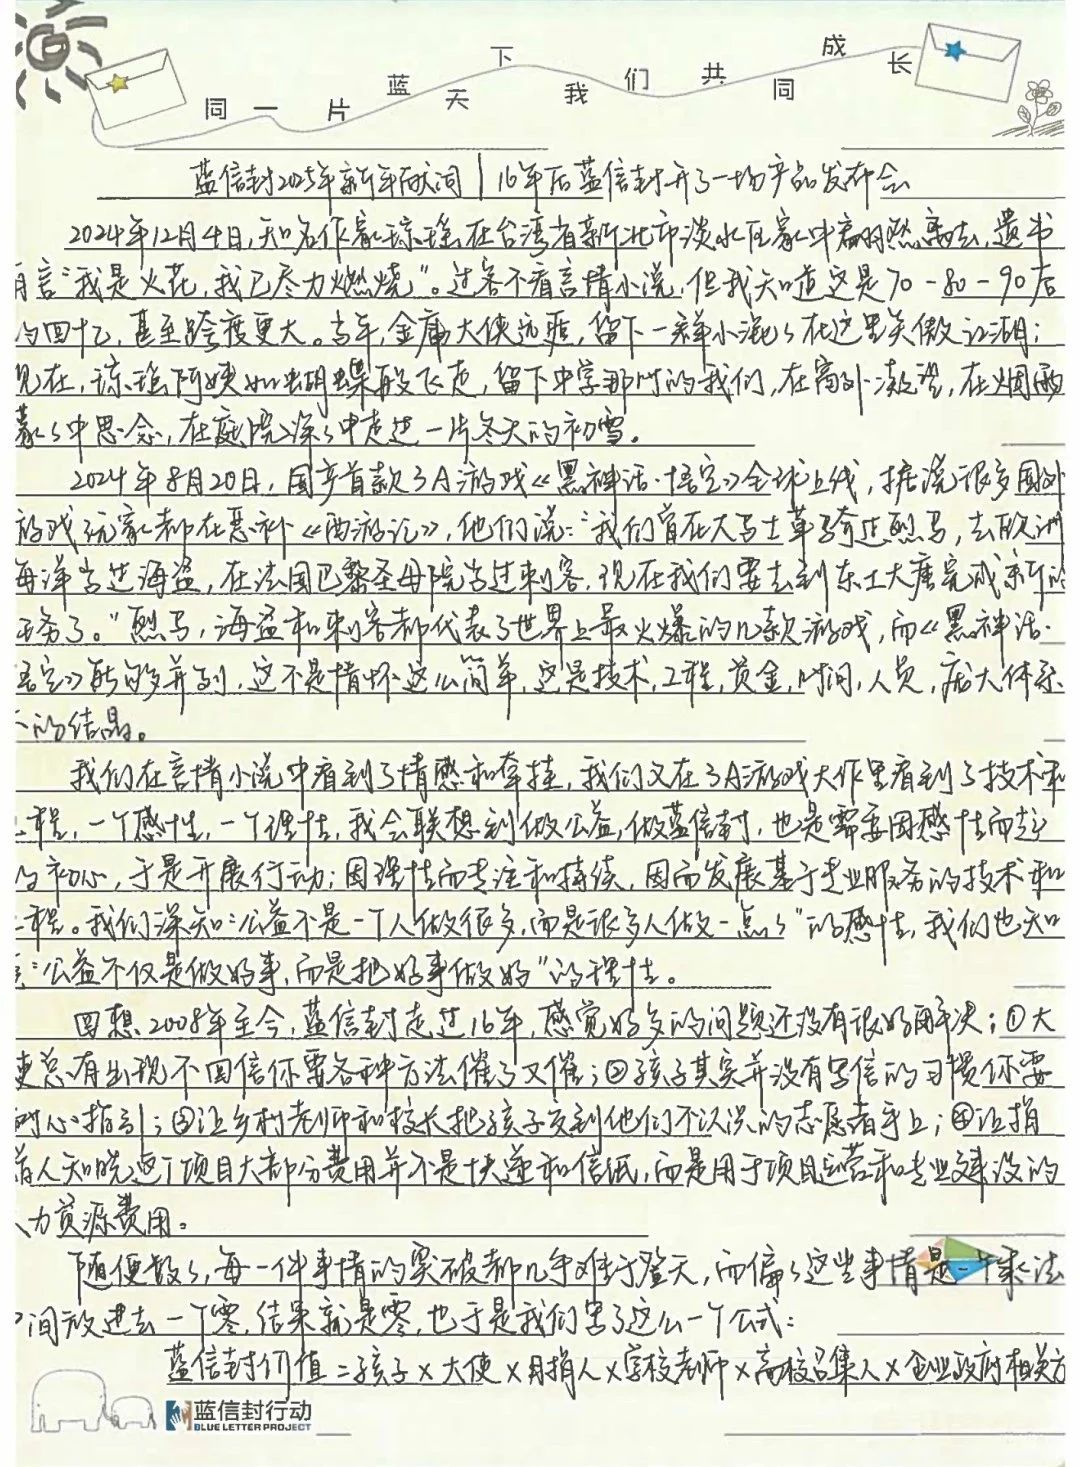 同一片蓝天下我们共同成长
蓝信封2025年新年献词 | 16年后蓝信封开了一场产品发布会
2024年12月4日,知名作家琼瑶在台湾省新北市淡水区家中翩然离去,遗书
有言“我是火花,我已尽力燃烧”。过客不看言情小说,但我知道这是70-80-90后
的回忆,甚至跨度更大。当年,金庸大侠远逝,留下一群小混混在这里笑傲江湖;
现在,琼瑶阿姨如蝴蝶般飞走,留下中学那时的我们,在窗外凝望,在烟雨
蒙蒙中思念,在庭院深深中走进一片冬天的初雪。
2024年8月20日,国产首款3A游戏《黑神话·悟空》全球上线,据说很多国外
游戏玩家都在恶补《西游记》,他们说:“我们曾在大马士革骑过烈马,去欧洲
海洋当过海盗,在法国巴黎圣母院当过刺客,现在我们要去到东土大唐完成新的
任务了。”烈马,海盗和刺客都代表了世界上最火爆的几款游戏,而《黑神话·
悟空》能够并列,这不是情怀这么简单,这是技术,工程,资金,时间,人员,庞大体系
下的结晶。
我们在言情小说中看到了情感和牵挂,我们又在3A游戏大作里看到了技术和
工程,一个感性,一个理性,我会联想到做公益,做蓝信封,也是需要因感性而起
的初心,于是开展行动;因理性而专注和持续,因而发展基于专业服务的技术和
工程。我们深知:“公益不是一个人做很多,而是很多人做一点点”的感性,我们也知
道:“公益不仅是做好事,而是把好事做好”的理性。
回想2008年至今,蓝信封走过16年,感觉好多的问题还没有很好解决;①大
使总有出现不回信你要各种方法催了又催;②孩子其实并没有写信的习惯你要
耐心指引;③让乡村老师和校长把孩子交到他们不认识的志愿者手上;④让捐
赠人知晓这个项目大部分费用并不是快递和信纸,而是用于项目运营和专业建设的
人力资源费用。
随便数数,每一件事情的突破都几乎难于登天,而偏偏这些事情是一个乘法
中间放进去一个零,结果就是零,也于是我们写了这么一个公式:
蓝信封价值=孩子×大使×月捐人×学校老师×高校召集人×企业政府相关方
蓝信封行动
BLUE LETTER PROJECT